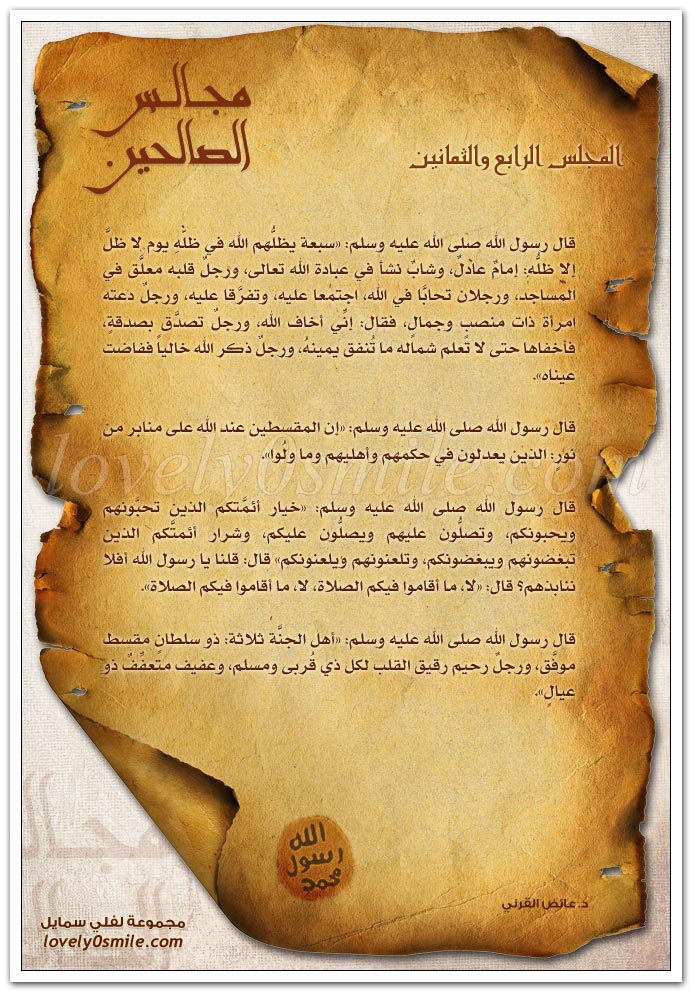 مجالس
الصالحين
المجلس الرابع والثمانين
قال رسول الله صلى الله عليه وسلم: «سبعة يظلُّهم الله في ظلِّهِ يوم لا ظلَّ
إلا ظلُّه: إمامٌ عادلٌ، وشابٌ نشأ في عبادة الله تعالى، ورجلٌ قلبه معلَّق في
المساجد، ورجلان تحابَّا في الله، اجتمعا عليه، وتفرَّقا عليه، ورجلٌ دعته
امرأة ذات منصبٍ وجمالٍ، فقال: إنِّي أخاف الله، ورجلٌ تصدَّق بصدقةٍ،
فأخفاها حتى لا تعلم شماله ما تُنفق يمينهُ، ورجلٌ ذكر الله خالياً ففاضت
عيناه».
قال رسول الله صلى الله عليه وسلم: «إن المقسطين عند الله على منابر من
نور: الذين يعدلون في حكمهم وأهليهم وما ولُوا».
قال رسول الله صلى الله عليه وسلم: «خيار أئمَّتكم الذين تحبَّونهم
ويحبونكم، وتصلُّون عليهم ويصلُّون عليكم، وشرار أئمتَّكم الذين
تبغضونهم ويبغضونكم، وتلعنونهم ويلعنونكم» قال: قلنا يا رسول الله أفلا
ننابذهم؟ قال: «لا، ما أقاموا فيكم الصلاة، لا، ما أقاموا فيكم الصلاة».
قال رسول الله صلى الله عليه وسلم: «أهل الجنَّة ثلاثة: ذو سلطانٍ مقسط
موفَّق، ورجلٌ رحيم رقيق القلب لكل ذي قُربى ومسلم، وعفيف متعفِّفٌ ذو
عيالٍ».
lovely0smile.com
الله
رسول
محمد
د. عائض القرني
مجالس
مجموعة لفلي سمايل
lovely0smile.com